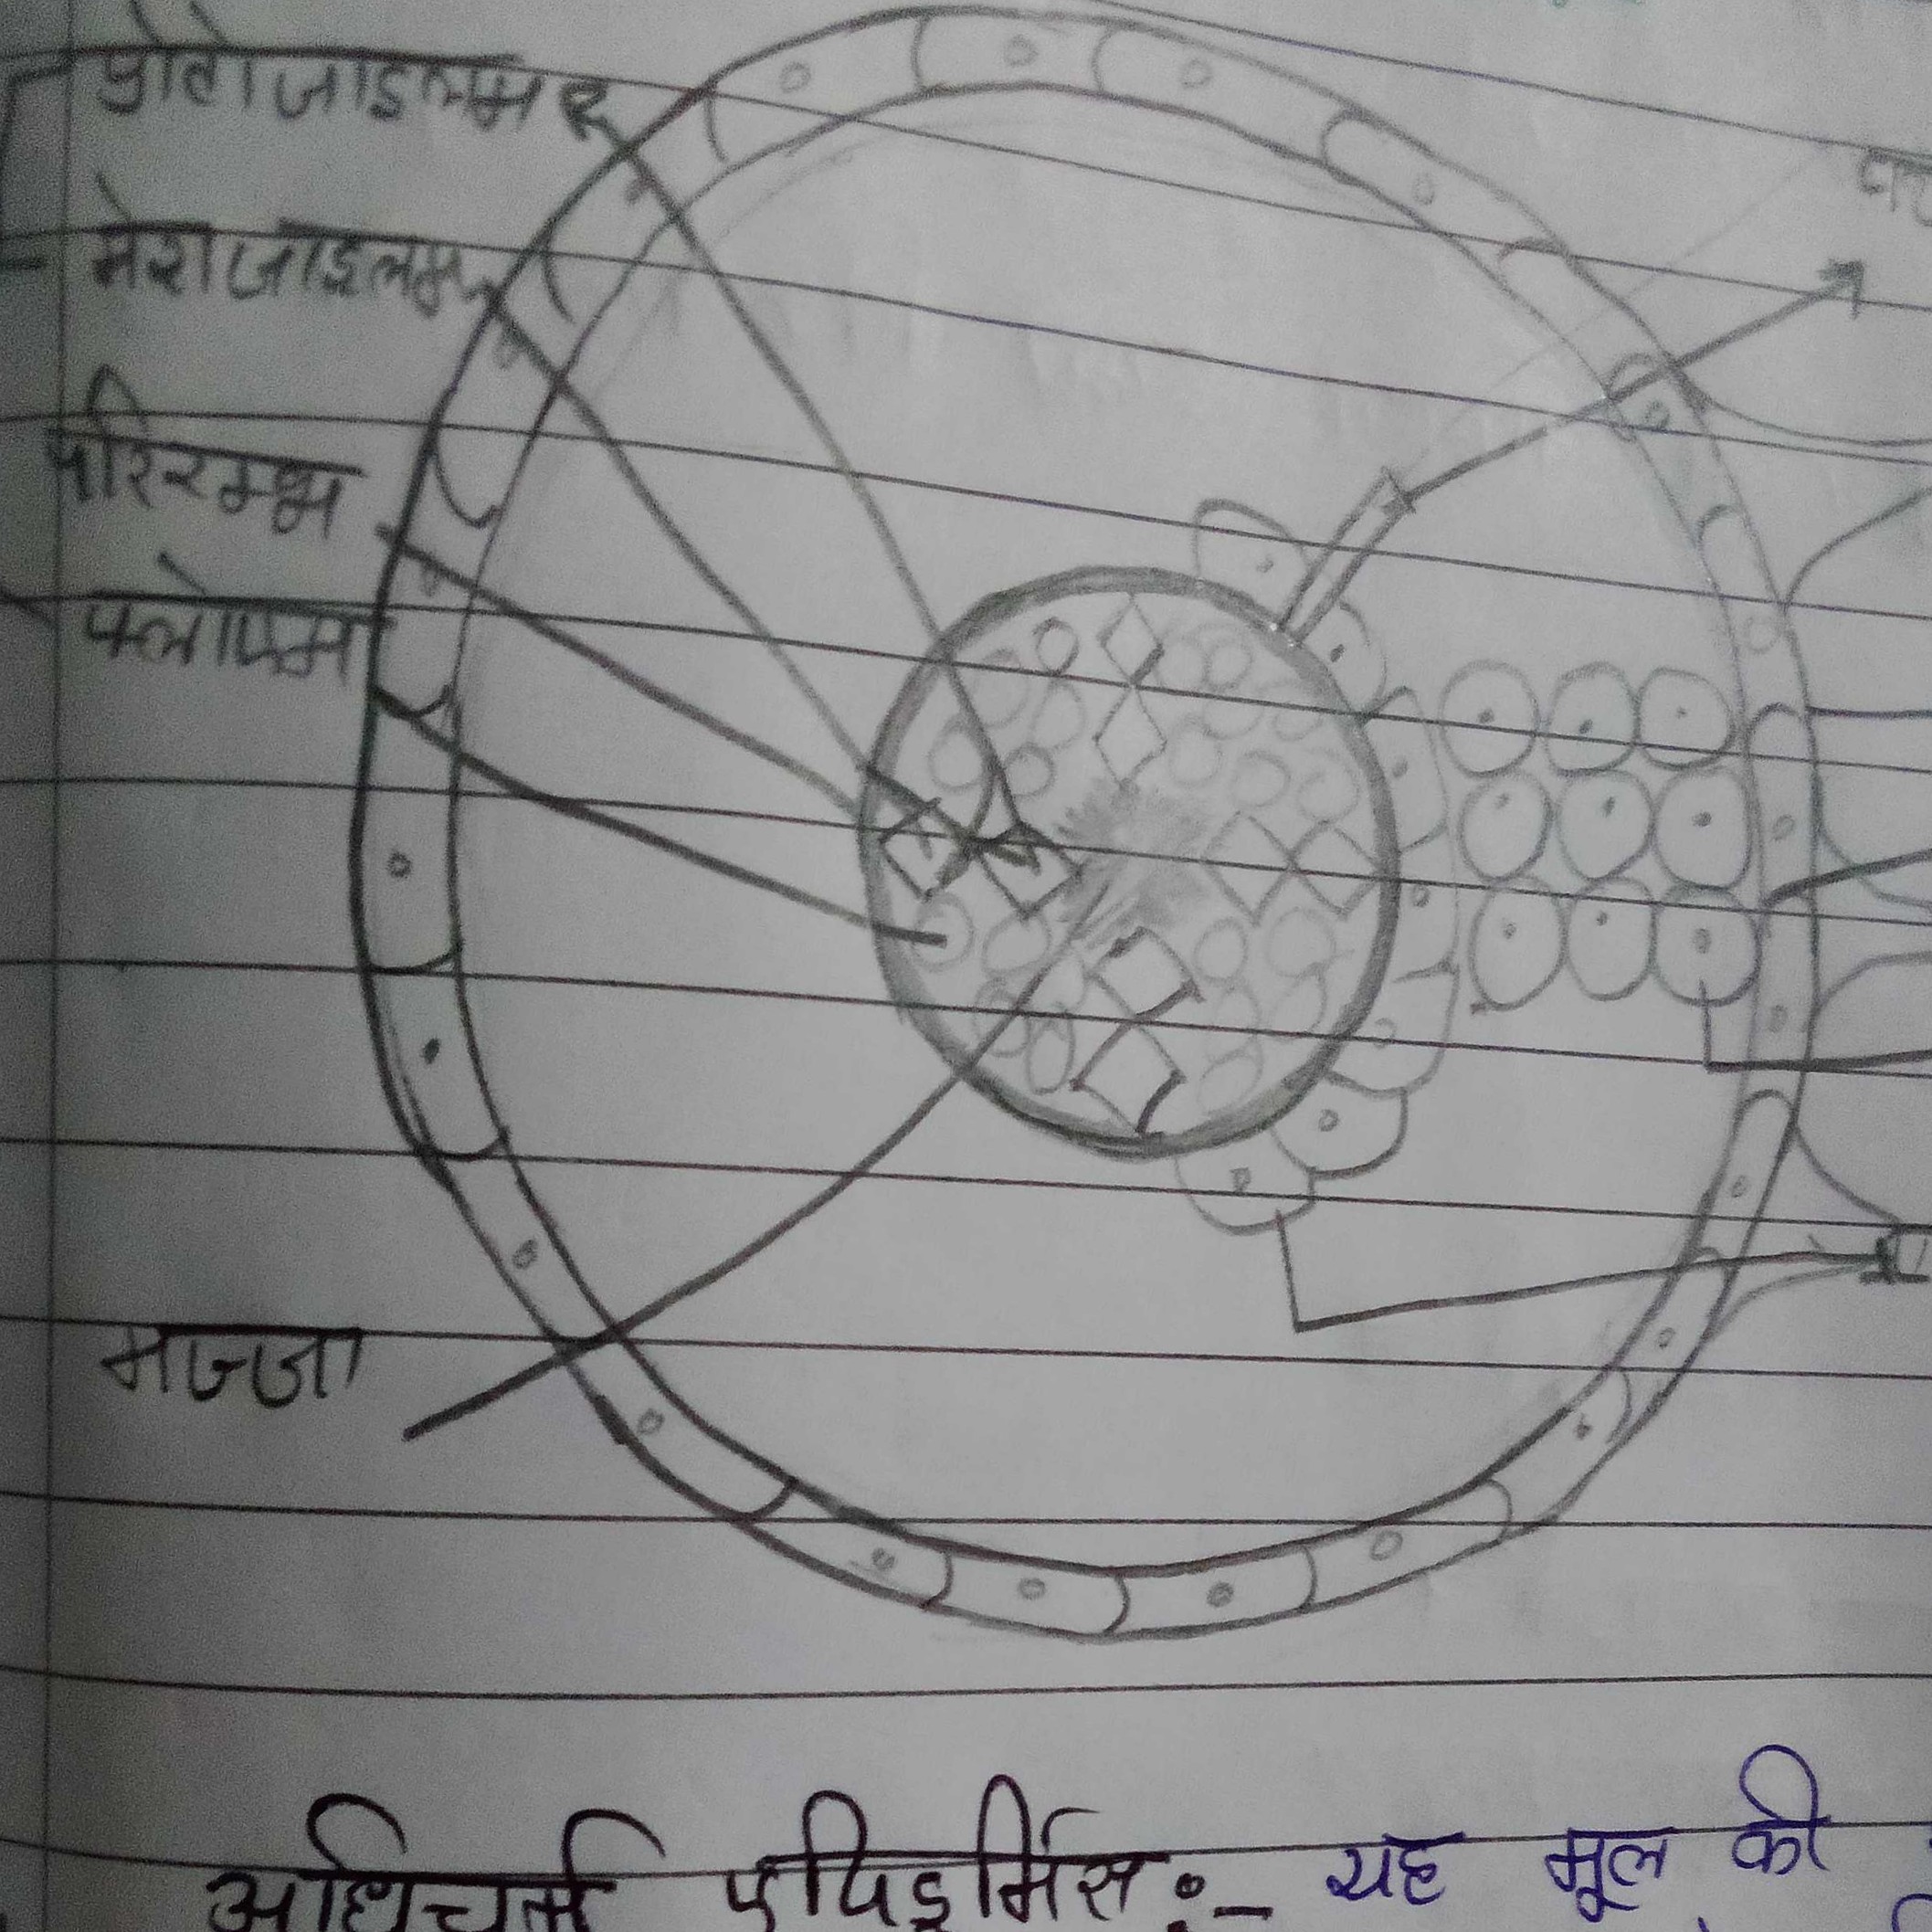 प्रोटोजाइलम
मेटाजाइलम
परिरम्भ
फ्लोएम
मज्जा
अधिचर्म एपिडर्मिस :- यह मूल की